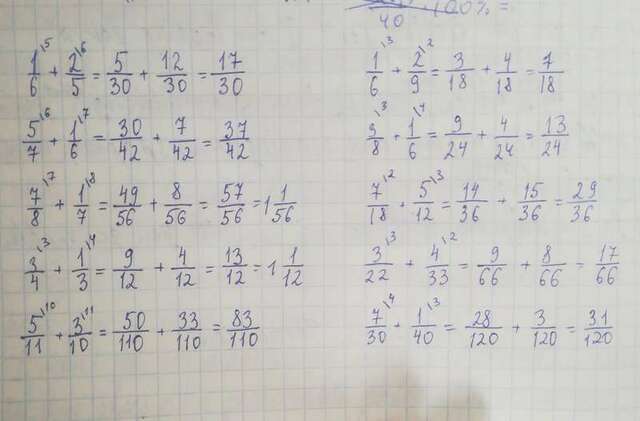 40 · 100% =
1/6\5 + 2/5\6 = 5/30 + 12/30 = 17/30
5/7\6 + 1/6\7 = 30/42 + 7/42 = 37/42
7/8\7 + 1/7\8 = 49/56 + 8/56 = 57/56 = 1 1/56
3/4\3 + 1/3\4 = 9/12 + 4/12 = 13/12 = 1 1/12
5/11\10 + 3/10\11 = 50/110 + 33/110 = 83/110
1/6\3 + 2/9\2 = 3/18 + 4/18 = 7/18
3/8\3 + 1/6\4 = 9/24 + 4/24 = 13/24
7/18\2 + 5/12\3 = 14/36 + 15/36 = 29/36
3/22\3 + 4/33\2 = 9/66 + 8/66 = 17/66
7/30\4 + 1/40\3 = 28/120 + 3/120 = 31/120